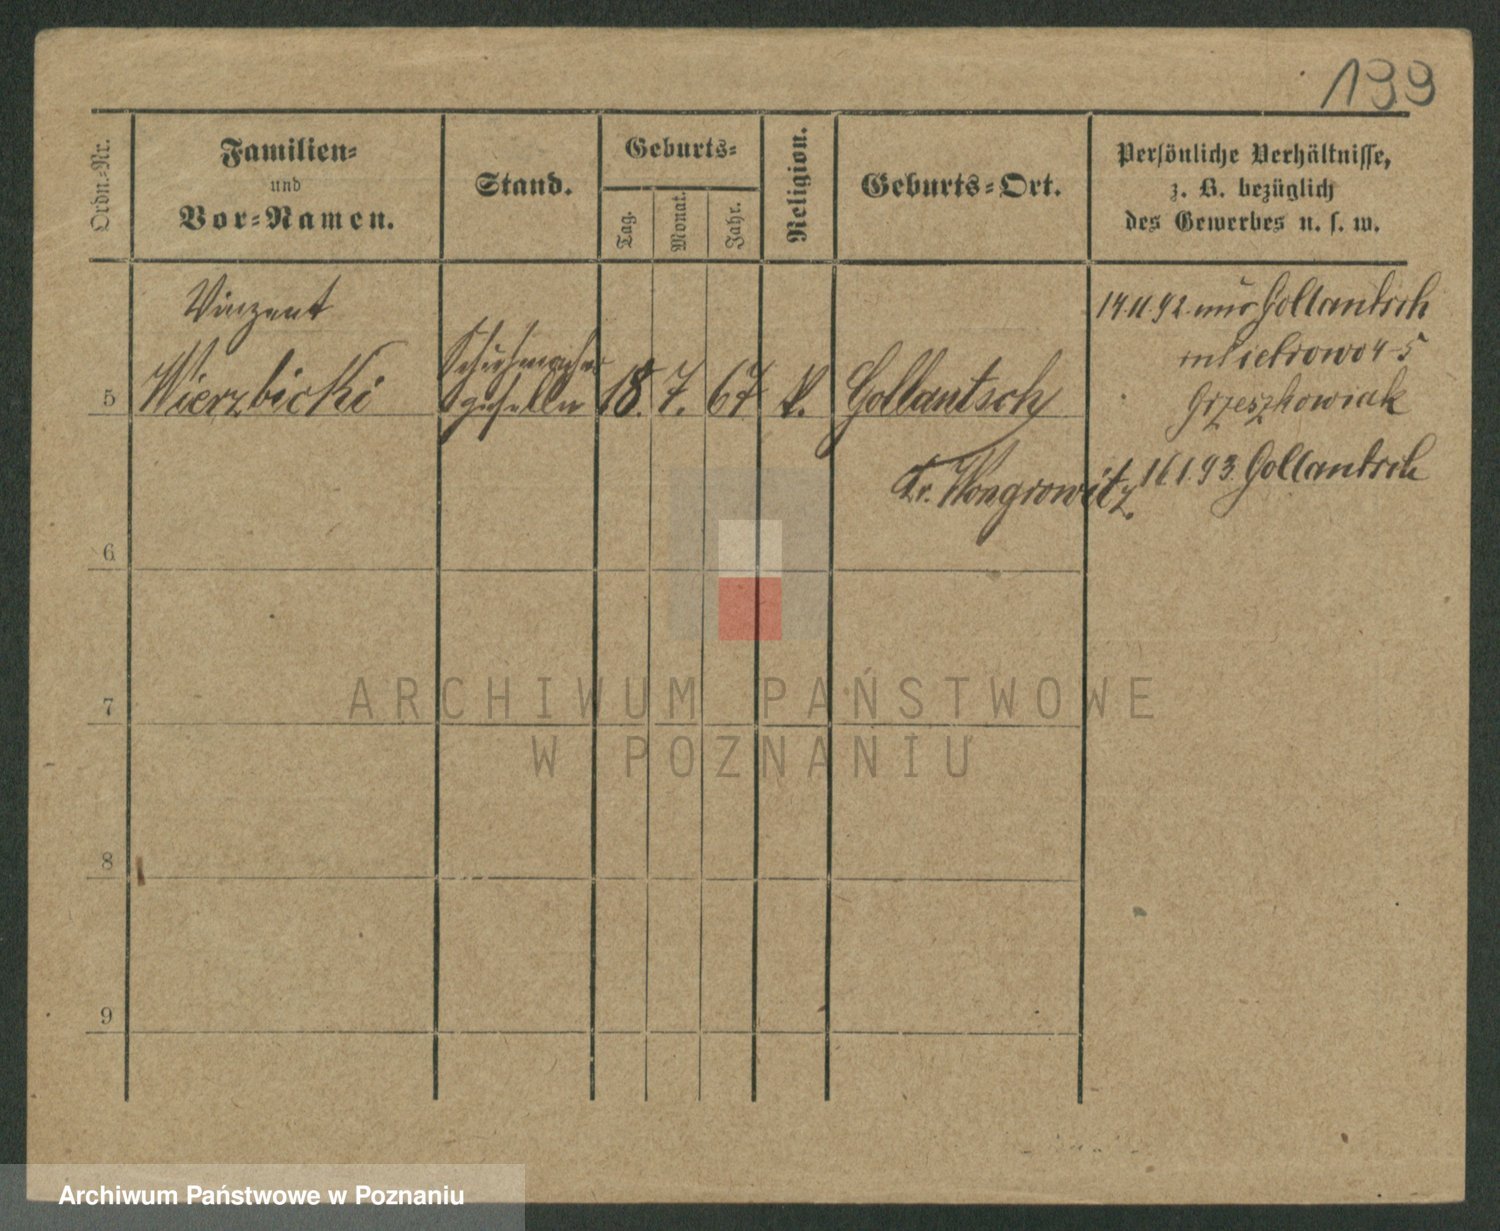 199
Ordn.-Nr.
Familien-
und
Vor-Namen.
Stand.
Geburts-
Tag.
Monat.
Jahr.
Religion.
Geburts-Ort.
Persönliche Verhältnisse,
z. B. bezüglich
des Gewerbes u. s. w.
Vinzent
5 Wierzbicki
Schuhmacher
geselle
18. 7. 67 k. Gollantsch
Kr. Wongrowitz
14.11.92. aus Gollantsch
Pietrowo 4-5
Grzeszkowiak
16.1.93. Gollantsch
6
7
8
9
ARCHIWUM PAŃSTWOWE
W POZNANIU
Archiwum Państwowe w Poznaniu